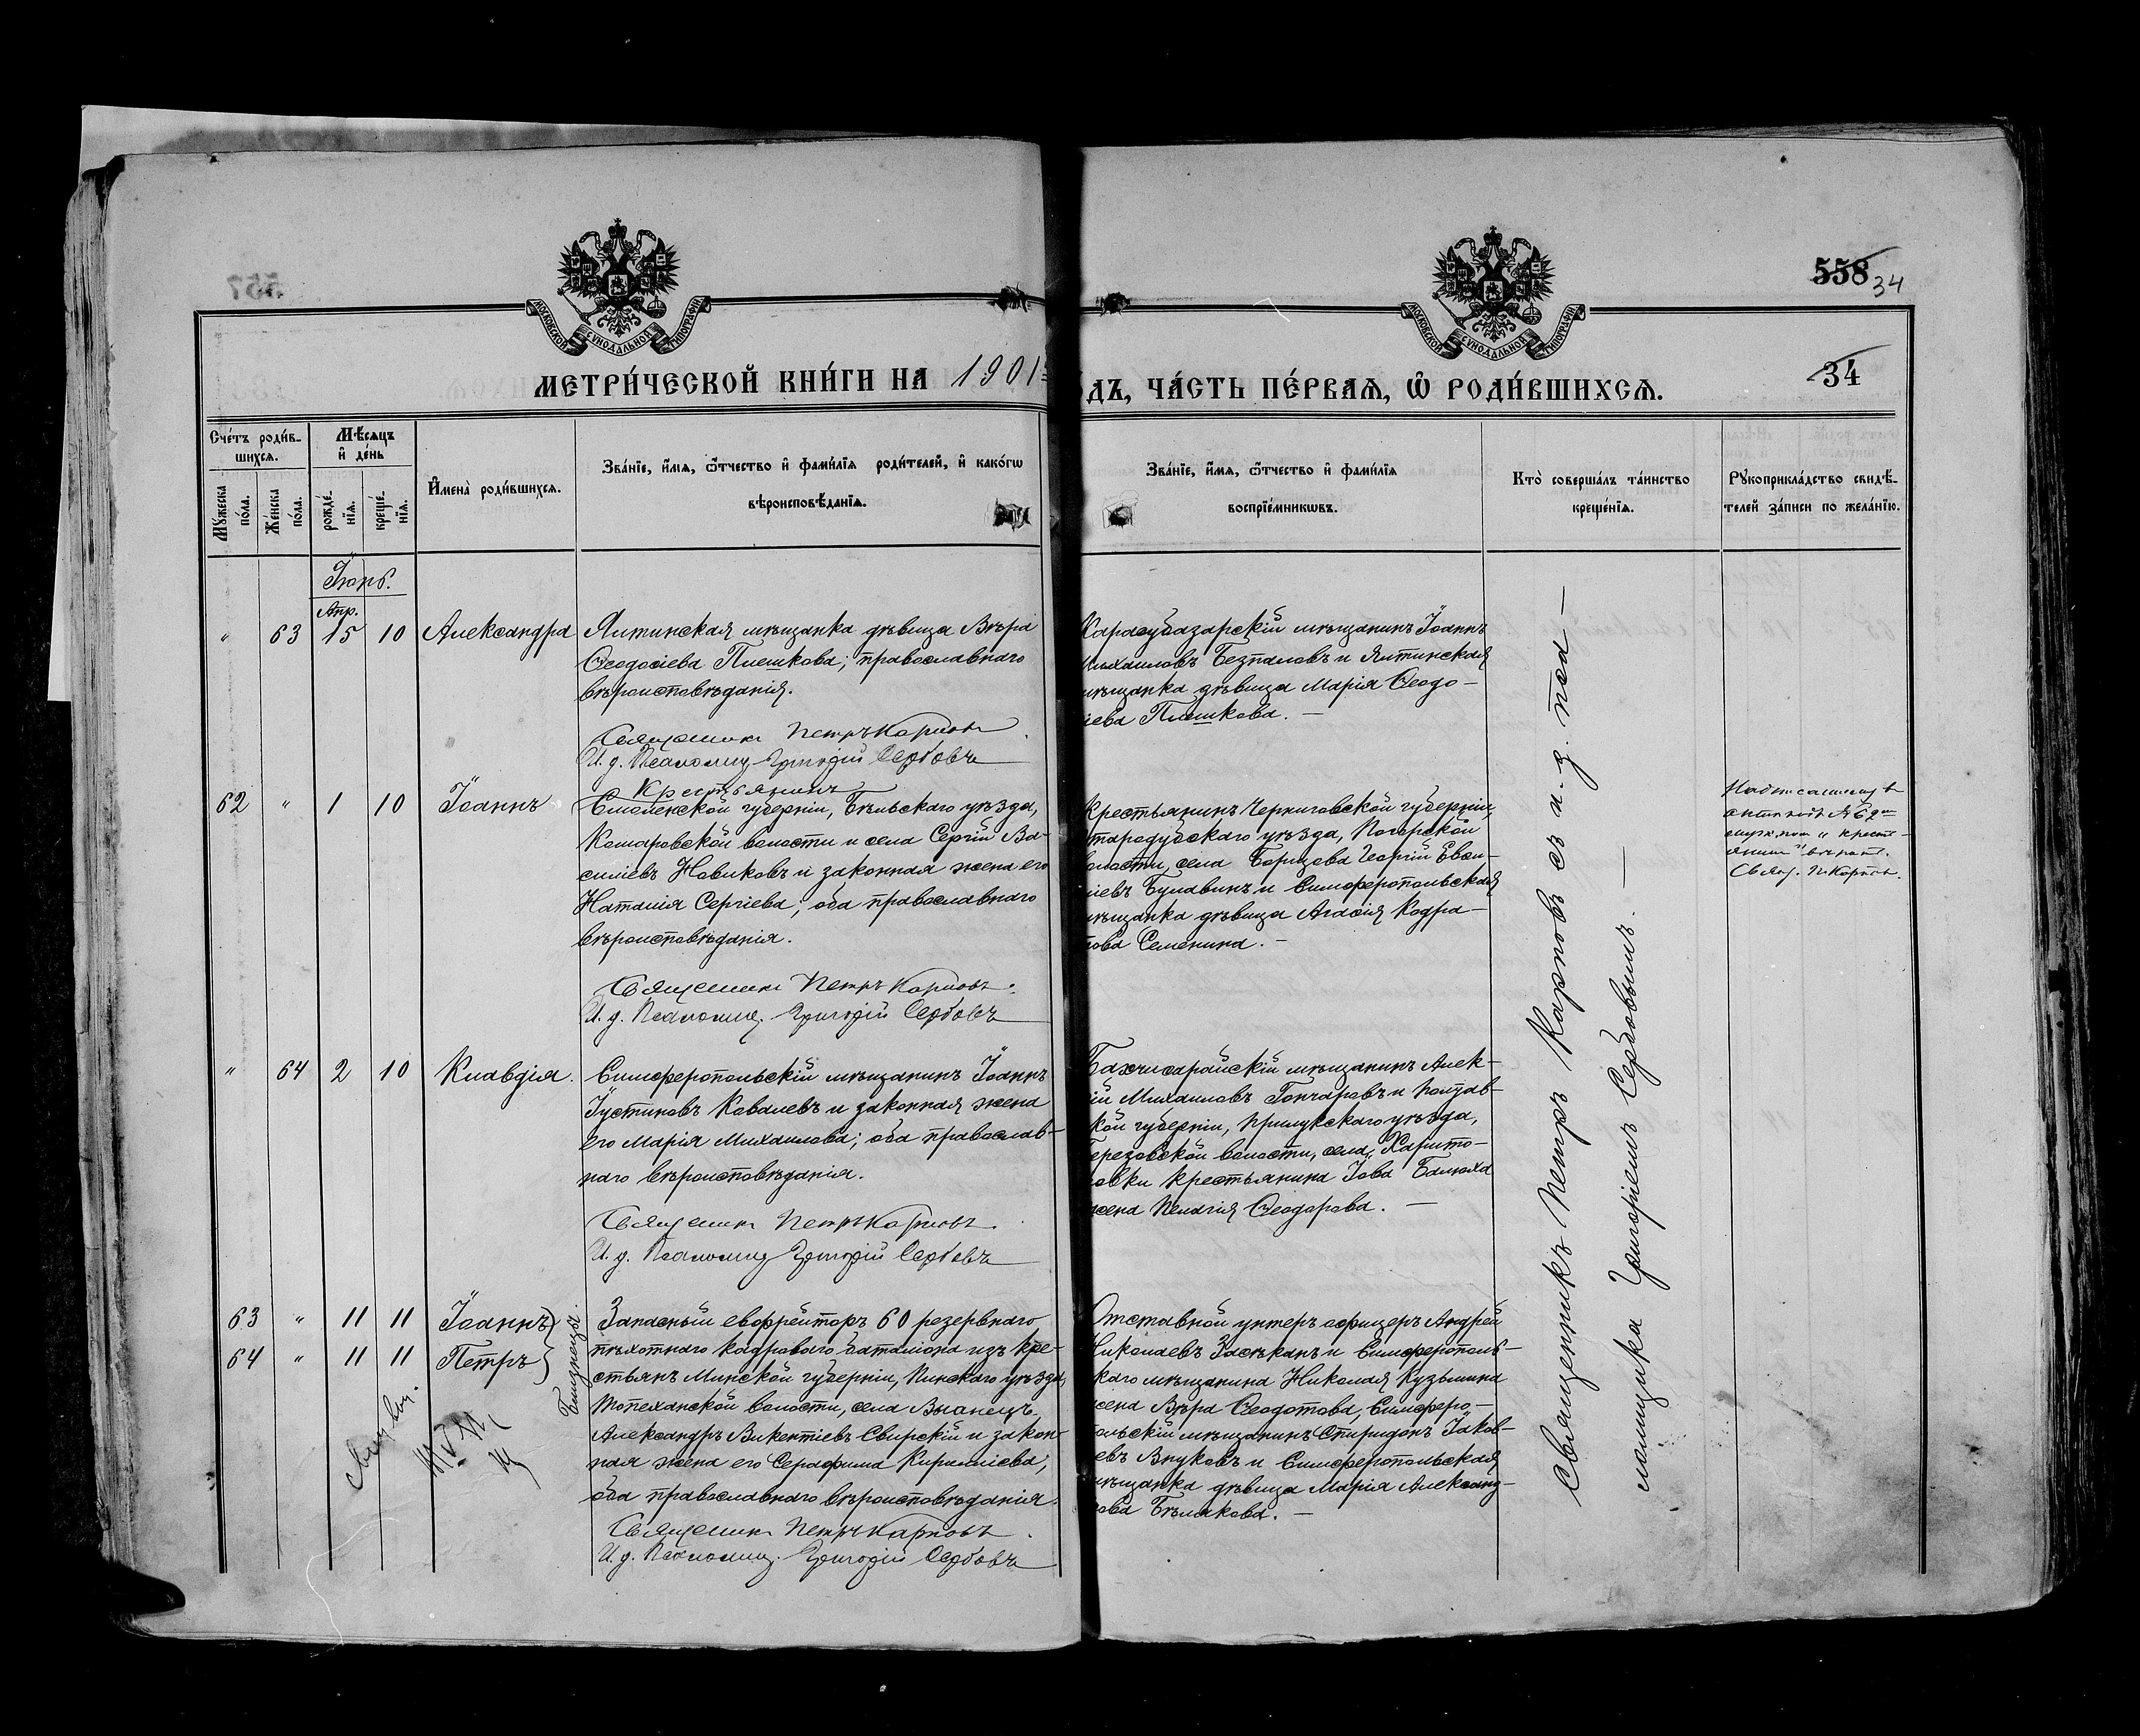 558 34
МОСКОВСКОЙ СУНОДАЛЬНОЙ ТИПОГРАФІИ
МОСКОВСКОЙ СУНОДАЛЬНОЙ ТИПОГРАФІИ
МЕТРИ́ЧЕСКОЙ КНИ́ГИ НА 1901
ДЪ, ЧА́СТЬ ПЕ́РВАѦ, Ѿ РОДИ́ВШИХСѦ.
34
Сче́тъ роди́в-
шихсѧ.
Мѣ́сѧцъ
и҆ де́нь
Мꙋ́жеска
по́ла.
Же́нска
по́ла.
рожде́-
нїѧ.
креще́-
нїѧ.
И҆мена̀ роди́вшихсѧ.
Зва́нїе, и҆́мѧ, ѻ҆́тчество и҆ фами́лїѧ роди́телей, и҆ како́гѡ
вѣроисповѣ́данїѧ.
Зва́нїе, и҆́мѧ, ѻ҆́тчество и҆ фами́лїѧ
воспрїе́мникѡвъ.
Кто̀ соверша́лъ та́инство
креще́нїѧ.
Рꙋкоприкла́дство свидѣ́-
телей за́писи по жела́нїю.
Іюнь.
Апр.
" 63 15 10 Александра
Ялтинская мѣщанка дѣвица Вѣра
Ѳеодосіева Плешкова; православнаго
вѣроисповѣданія.
Священникъ Петръ Карповъ
И. д. Псаломщ. Григорій Сербовъ
Карасубазарскій мѣщанинъ Іоаннъ
Михаиловъ Безпаловъ и Ялтинская
мѣщанка дѣвица Марія Ѳеодо-
іева Плешкова. —
62 " 1 10 Іоаннъ
Крестьянинъ
Смоленской губерніи, Бѣльскаго уѣзда,
Комаровской волости и села Сергій Ва-
силіевъ Новиковъ и законная жена его
Наталія Сергіева; оба православнаго
вѣроисповѣданія.
Священникъ Петръ Карповъ.
И. д. Псаломщ. Григорій Сербовъ
Крестьянинъ Черниговской губерніи,
тародубскаго уѣзда, Погарской
волости, села Борщова Георгій Евси-
іевъ Булавинъ и Симферопольская
мѣщанка дѣвица Агасія Кодра-
това Семенина. —
Надписанному въ
актѣ подъ № 62 мъ
"крестья-
янинъ" вѣрить.
Свящ. П. Карповъ.
" 64 2 10 Клавдія.
Симферопольскій мѣщанинъ Іоаннъ
Іустиновъ Ковалевъ и законная жена
его Марія Михаилова; оба православ-
наго вѣроисповѣданія.
Священникъ Петръ Карповъ.
И. д. Псаломщ. Григорій Сербовъ
Бахчисарайскій мѣщанинъ Алек-
ій Михаиловъ Гончаровъ и Полтав-
кой губерніи, Прилукскаго уѣзда,
Березовской волости, села Харито-
овки крестьянина Іова Балюха
жена Пелагія Ѳеодорова. —
63 " 11 11 Іоаннъ
64 " 11 11 Петръ
Близнецы.
Запасный ефрейторъ 60 резервнаго
пѣхотнаго кадроваго баталіона изъ кре-
стьянъ Минской губерніи, Пинскаго уѣзда,
волости, села
Александръ Викентіевъ Свирскій и закон-
ная жена его Серафима Кириллiева,
оба православнаго вѣроисповѣданія.
Священникъ Петръ Карповъ.
И. д. Псаломщ. Григорій Сербовъ
Отставной унтеръ офицеръ Андрей
Николаевъ Засѣканъ и Симферополь-
скаго мѣщанина Николая Кузьмина
жена Вѣра Ѳеодотова, Симферо-
польскій мѣщанинъ Спиридонъ Іаков-
евъ Внуковъ и Симферопольская
мѣщанка дѣвица Марія Александ-
рова Бѣлякова. —
Священникъ Петръ Карповъ съ и. д. пса —
ломщика Григоріемъ Сербовымъ. —